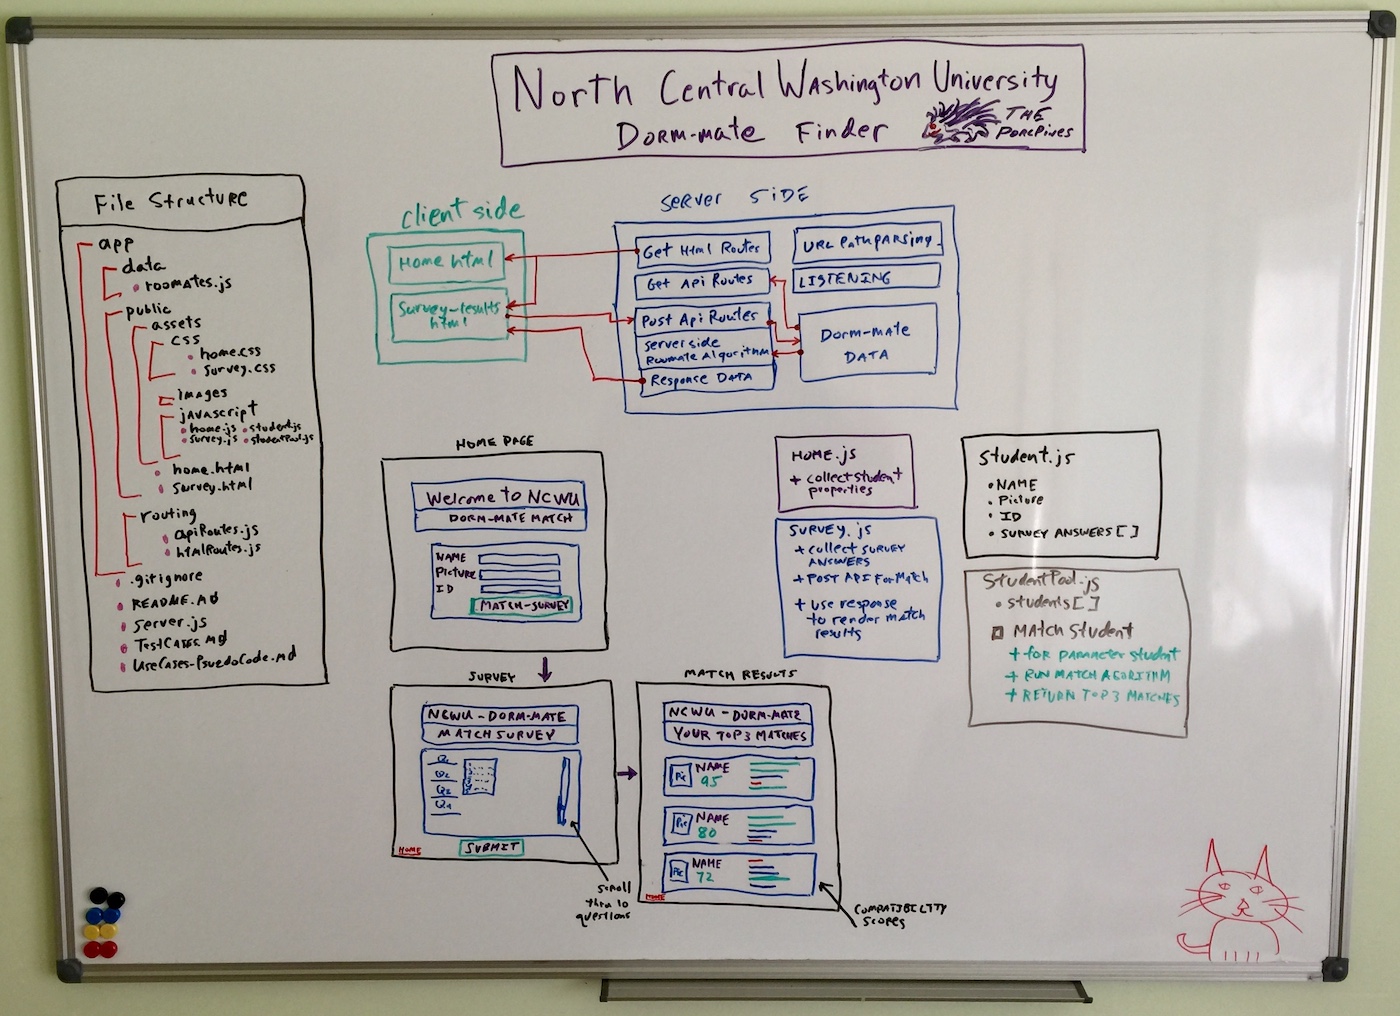 North Central Washington University
Dorm-mate Finder
THE
Porcpines
File Structure
app
data
roomates.js
public
assets
css
home.css
survey.css
images
javascript
home.js student.js
survey.js studentPool.js
home.html
survey.html
routing
apiRoutes.js
htmlRoutes.js
.gitignore
README.md
server.js
TestCases.MD
UseCases-PsuedoCode.md
client side
Home html
Survey-results
html
Server Side
Get Html Routes
Get Api Routes
Post Api Routes
Serverside
Roomate Algorithm
Response DATA
URL Path Parsing
LISTENING
Dorm-mate
DATA
HOME PAGE
Welcome to NCWU
DORM-MATE MATCH
NAME
Picture
ID
MATCH-SURVEY
SURVEY
NCWU-DORM-MATE
MATCH SURVEY
Q1
Q2
Q3
Q4
HOME
SUBMIT
scroll
thru 10
questions
MATCH RESULTS
NCWU-DORM-MATE
YOUR TOP 3 MATCHES
Pic
NAME
95
Pic
NAME
80
Pic
NAME
72
HOME
COMPATIBILITY
SCORES
HOME.js
+ collect student
properties
SURVEY.js
+ collect SURVEY
ANSWERS
+ POST API For Match
+ use response
to render match
results
Student.js
• NAME
• Picture
• ID
• SURVEY ANSWERS[]
StudentPool.js
• students[]
MATCH Student
+ for parameter student
+ RUN MATCH AGORITHM
+ RETURN TOP 3 MATCHES